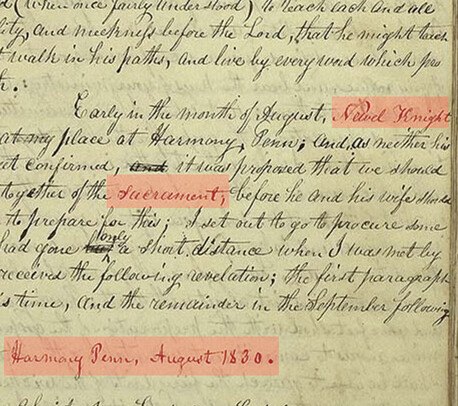 (when once fairly understood) to teach each and all
lity, and meekness before the Lord, that he might teach
t walk in his paths, and live by every word which pro
th.
Early in the month of August, Newel Knight
at my place at Harmony, Penn; and, as neither his
ut confirmed, and it was proposed that we should
together of the sacrament, before he and his wife should
to prepare for this; I set out to go to procure some
had gone only a short distance when I was met by
received the following revelation; the first paragraph
is time, and the remainder in the September following
Harmony Penn, August 1830.